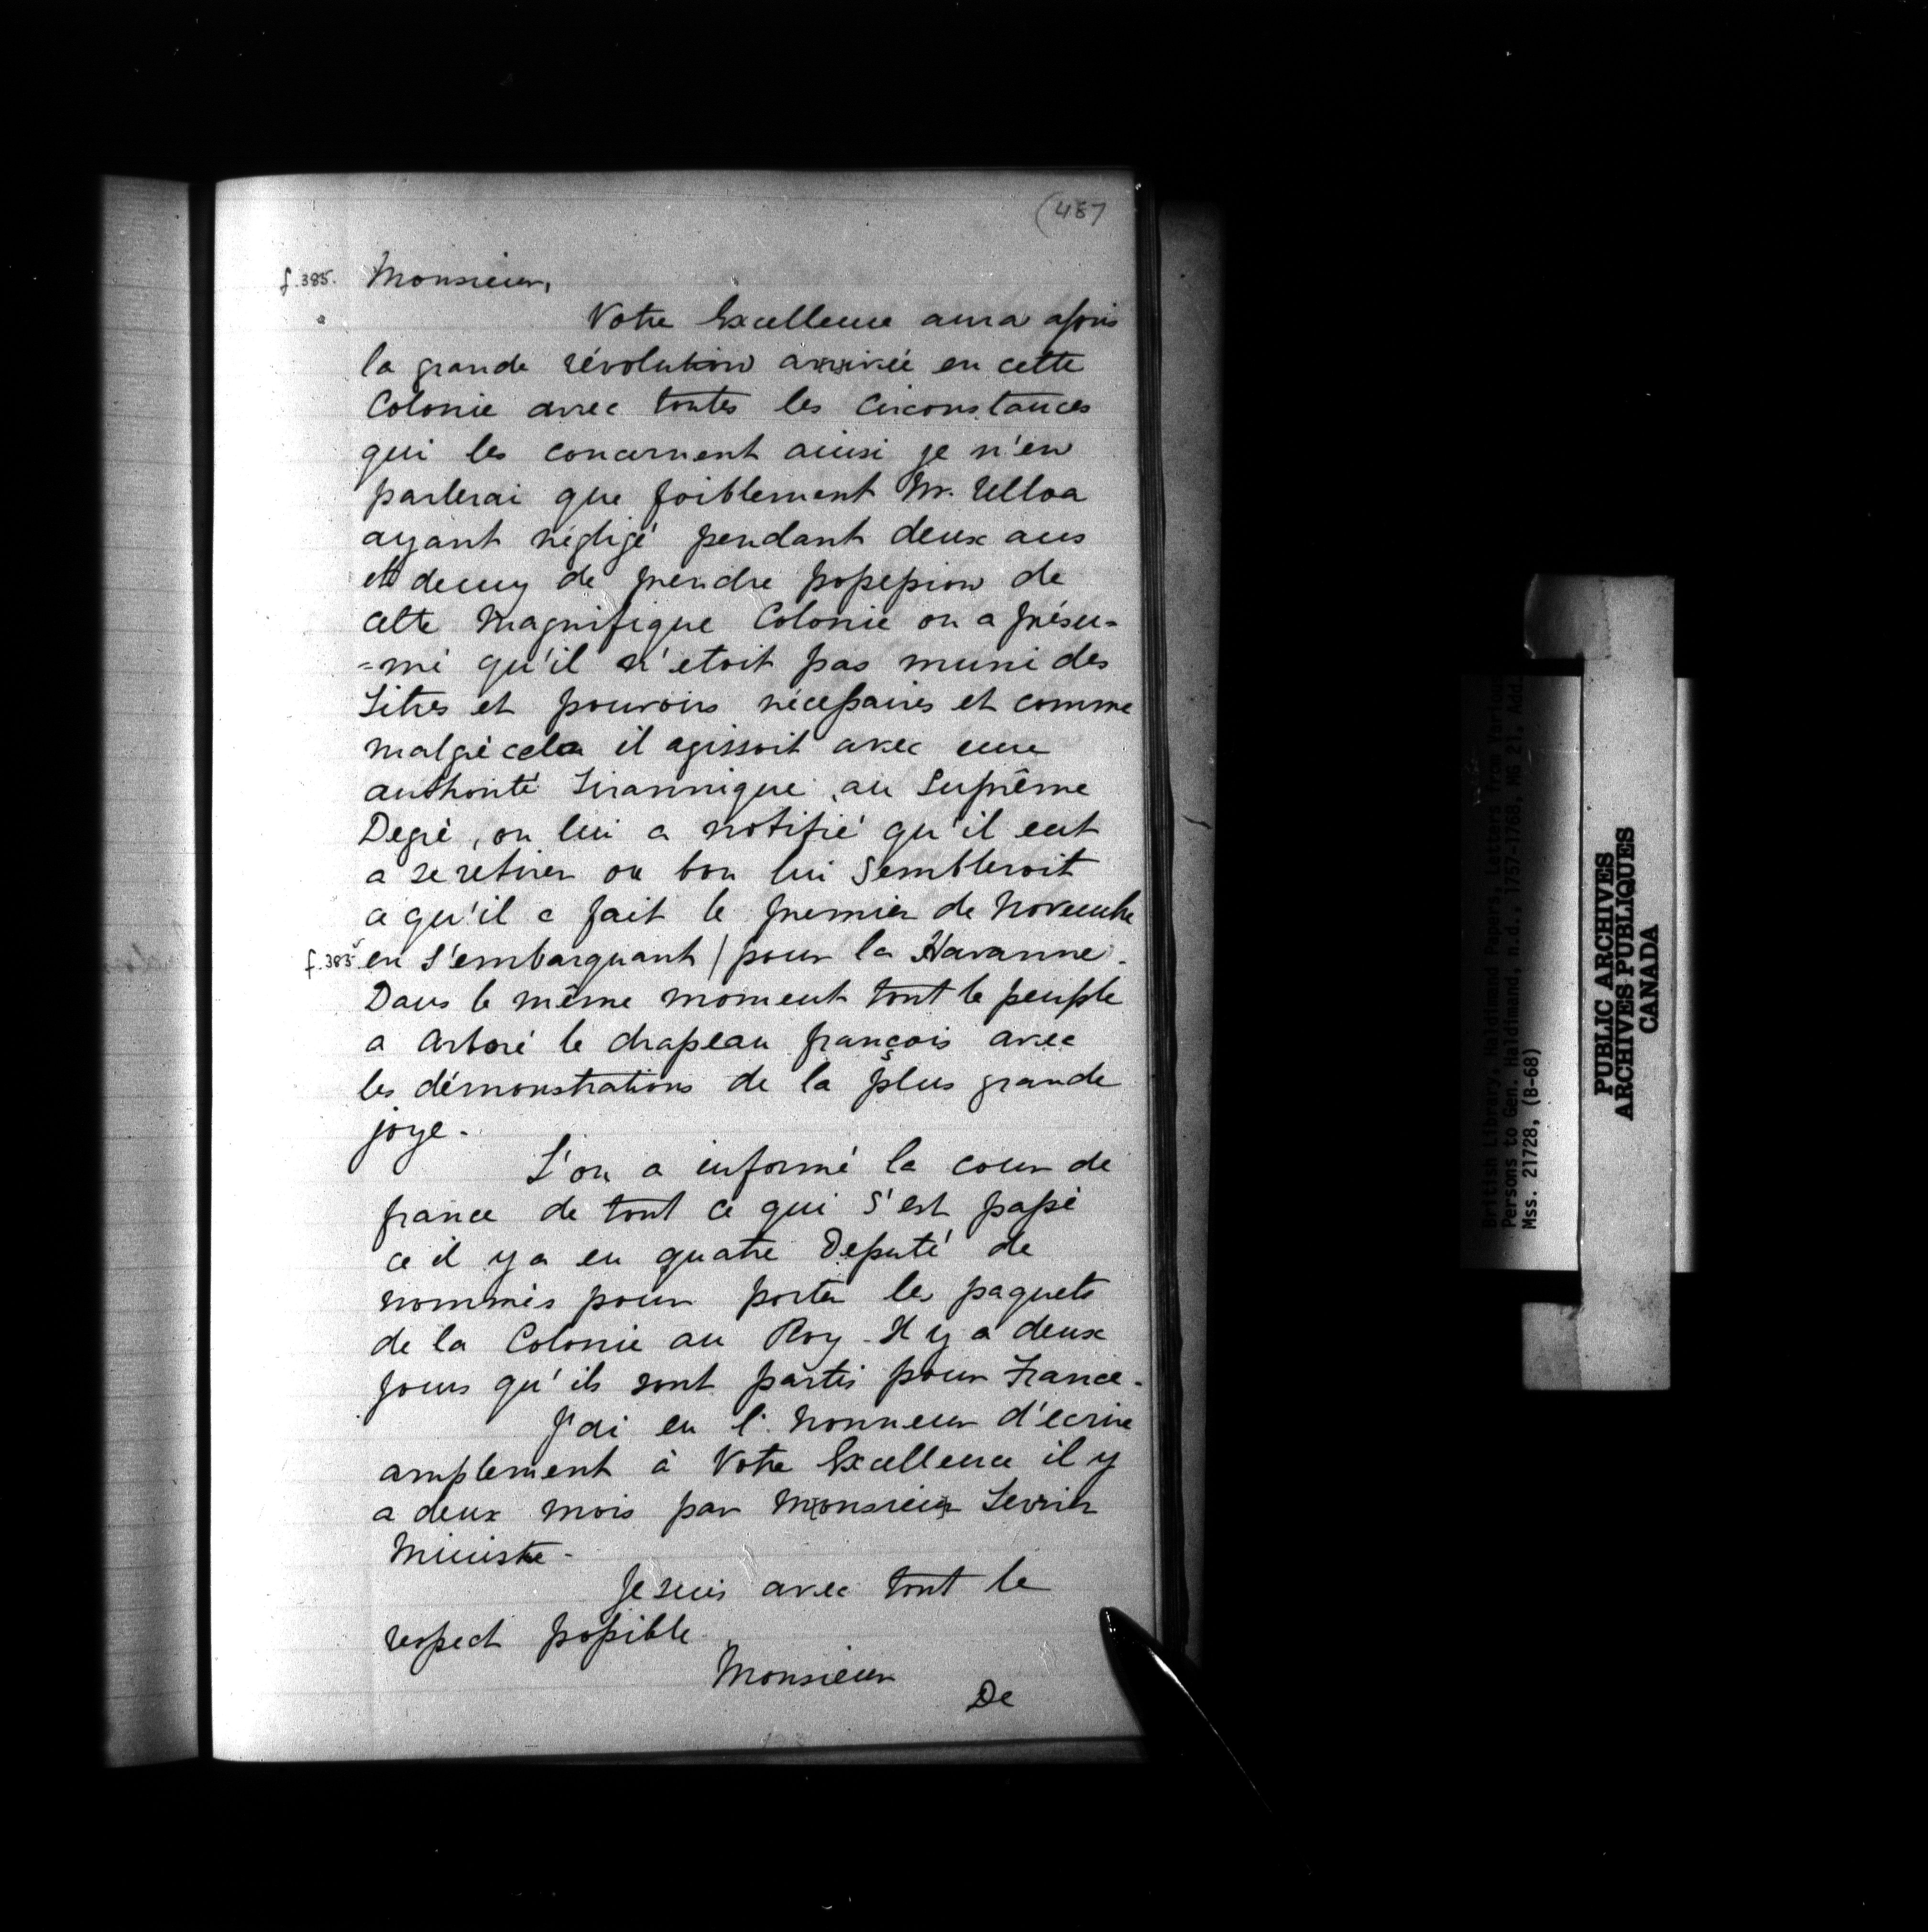 (487
f.385. Monsieur,
Votre Excellence aura apris
la grande révolution arrivée en cette
Colonie avec toutes les Circonstances
qui les concernent ainsi je n'en
parlerai que foiblement Mr. Ulloa
ayant négligé pendant deux ans
et demy de prendre possession de
cette Magnifique Colonie on a présu=
=mé qu'il n'etoit pas muni des
titres et pouvoirs nécessaires et comme
malgré cela il agissoit avec une
authorité tirannique au Suprême
Degré, on lui a notifié qu'il eut
a se retirer ou bon lui Sembleroit
ce qu'il a fait le premier de Novembre
f.385v en s'embarquant / pour la Havanne.
Dans le même moment tout le peuple
a Arboré le drapeau françois avec
les démonstrations de la plus grande
joye.
L'on a informé la cour de
france de tout ce qui s'est passé
ce il y a eu quatre Deputé de
nommés pour porter les paquets
de la Colonie au Roy. Il y a deux
jours qu'ils sont partis pour France.
J'ai eu l'honneur d'ecrire
amplement à Votre Excellence il y
a deux mois par Monsieur
Ministre.
Je suis avec tout le
respect possible
Monsieur
De
British Library, Haldimand Papers, Letters from Various
Persons to Gen. Haldimand, n.d., 1757-1768, MG 21, Add.
Mss. 21728, (B-68)
PUBLIC ARCHIVES
ARCHIVES PUBLIQUES
CANADA